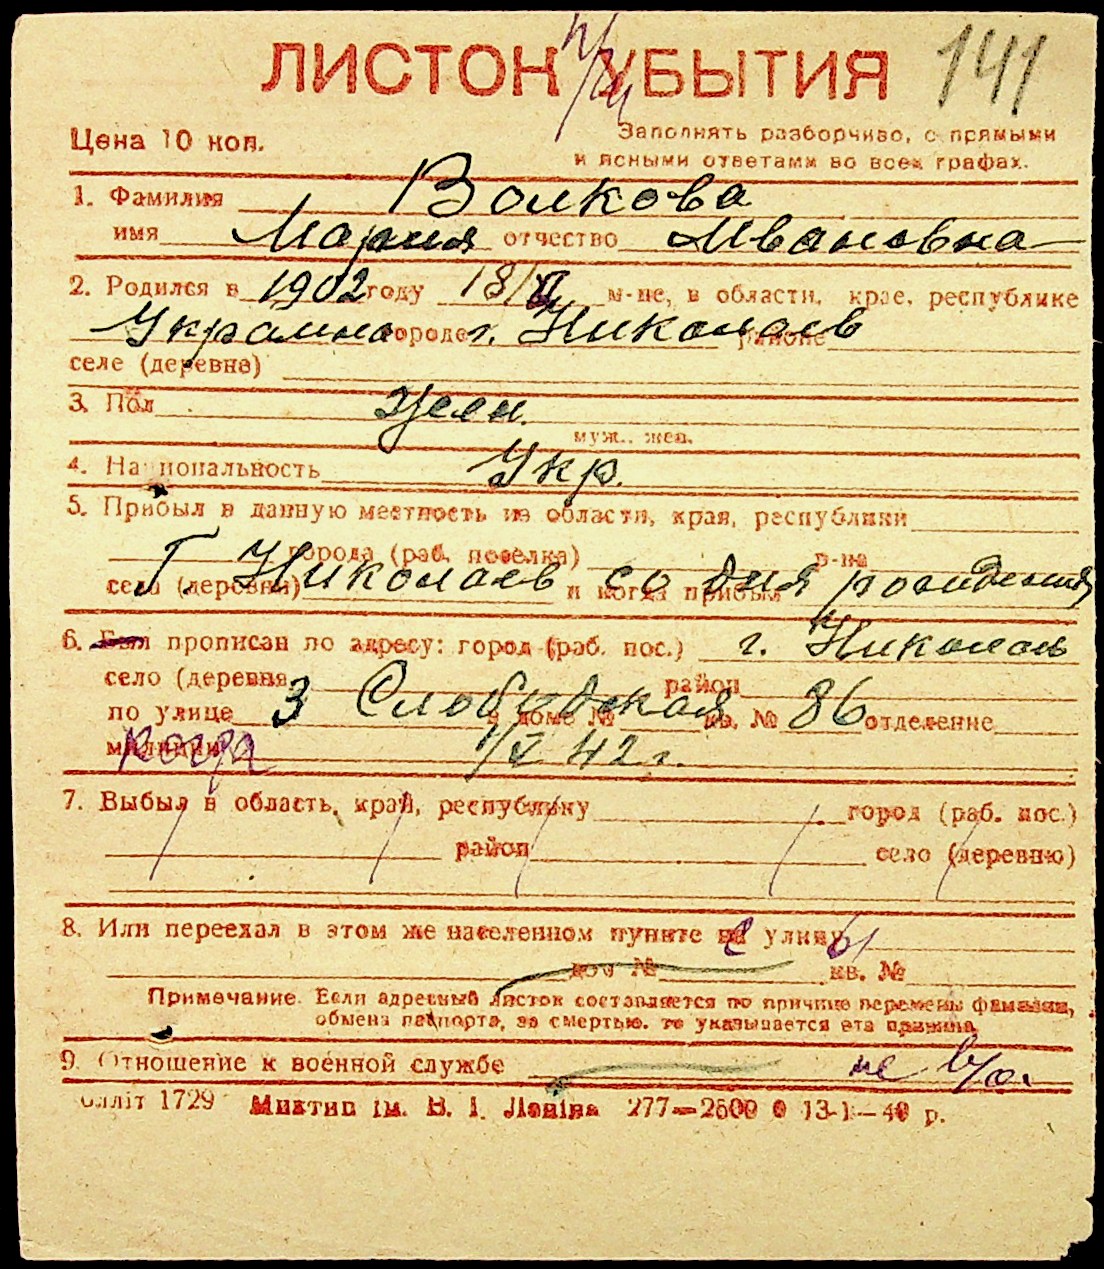 ЛИСТОК УБЫТИЯ 141
Цена 10 коп.
Заполнять разборчиво, с прямыми
и ясными ответами во всех графах.
1. Фамилия Волкова
имя Мария отчество Ивановна
2. Родился в 1902 году 18/ м-це, в области, крае, республике
Украина городе г. Николаев районе
селе (деревне)
3. Пол жен.
муж., жен.
4. Национальность Укр.
5. Прибыл в данную местность из области, края, республики
города (раб. поселка) р-на
села (деревни) и когда прибыл
Г Николаев со дня рождения
6. Был прописан по адресу: город (раб. пос.) г. Николаев
село (деревня район
по улице 3 Слободская в доме № кв. № 86 отделение
милиции когда 1/V 42 г.
7. Выбыл в область, край, республику город (раб. пос.)
район село (деревню)
8. Или переехал в этом же населенном пункте на улицу
дом № кв. №
Примечание. Если адресный листок составляется по причине перемены фамилии,
обмена паспорта, за смертью, то указывается эта причина
9. Отношение к военной службе не в/о.
блліт 1729 Миктип ім. В. І. Леніна 277—2500 0 13-1—40 р.